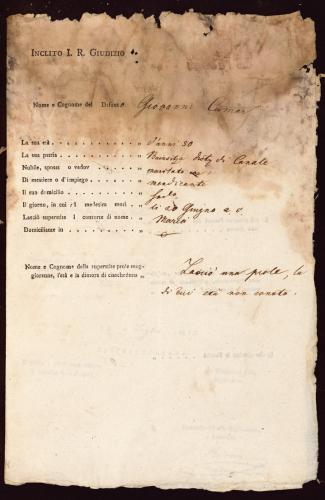 Inclito I. R. Giudizio
Nome e Cognome del Defunto Giovanni
La sua età . . . . . . . . . . „ d'anni 50
La sua patria . . . . . . . . . „ di Canale
Nubile, sposat o vedov . . . . . . „ maritato
Di mestiere o d'impiego . . . . . . „ mendicante
Il suo domicilio . . . . . . . . „
Il giorno, in cui il medesim morì . . . „ li 20 Giugno a. c.
Lasciò superstite il consorte di nome . . „ Maria
Domiciliante in . . . . . . . . „
Nome e Cognome della superstite prole mag-
giorenne, l'età e la dimora di ciascheduno „
Lasciò una prole, la
di cui età non consta.